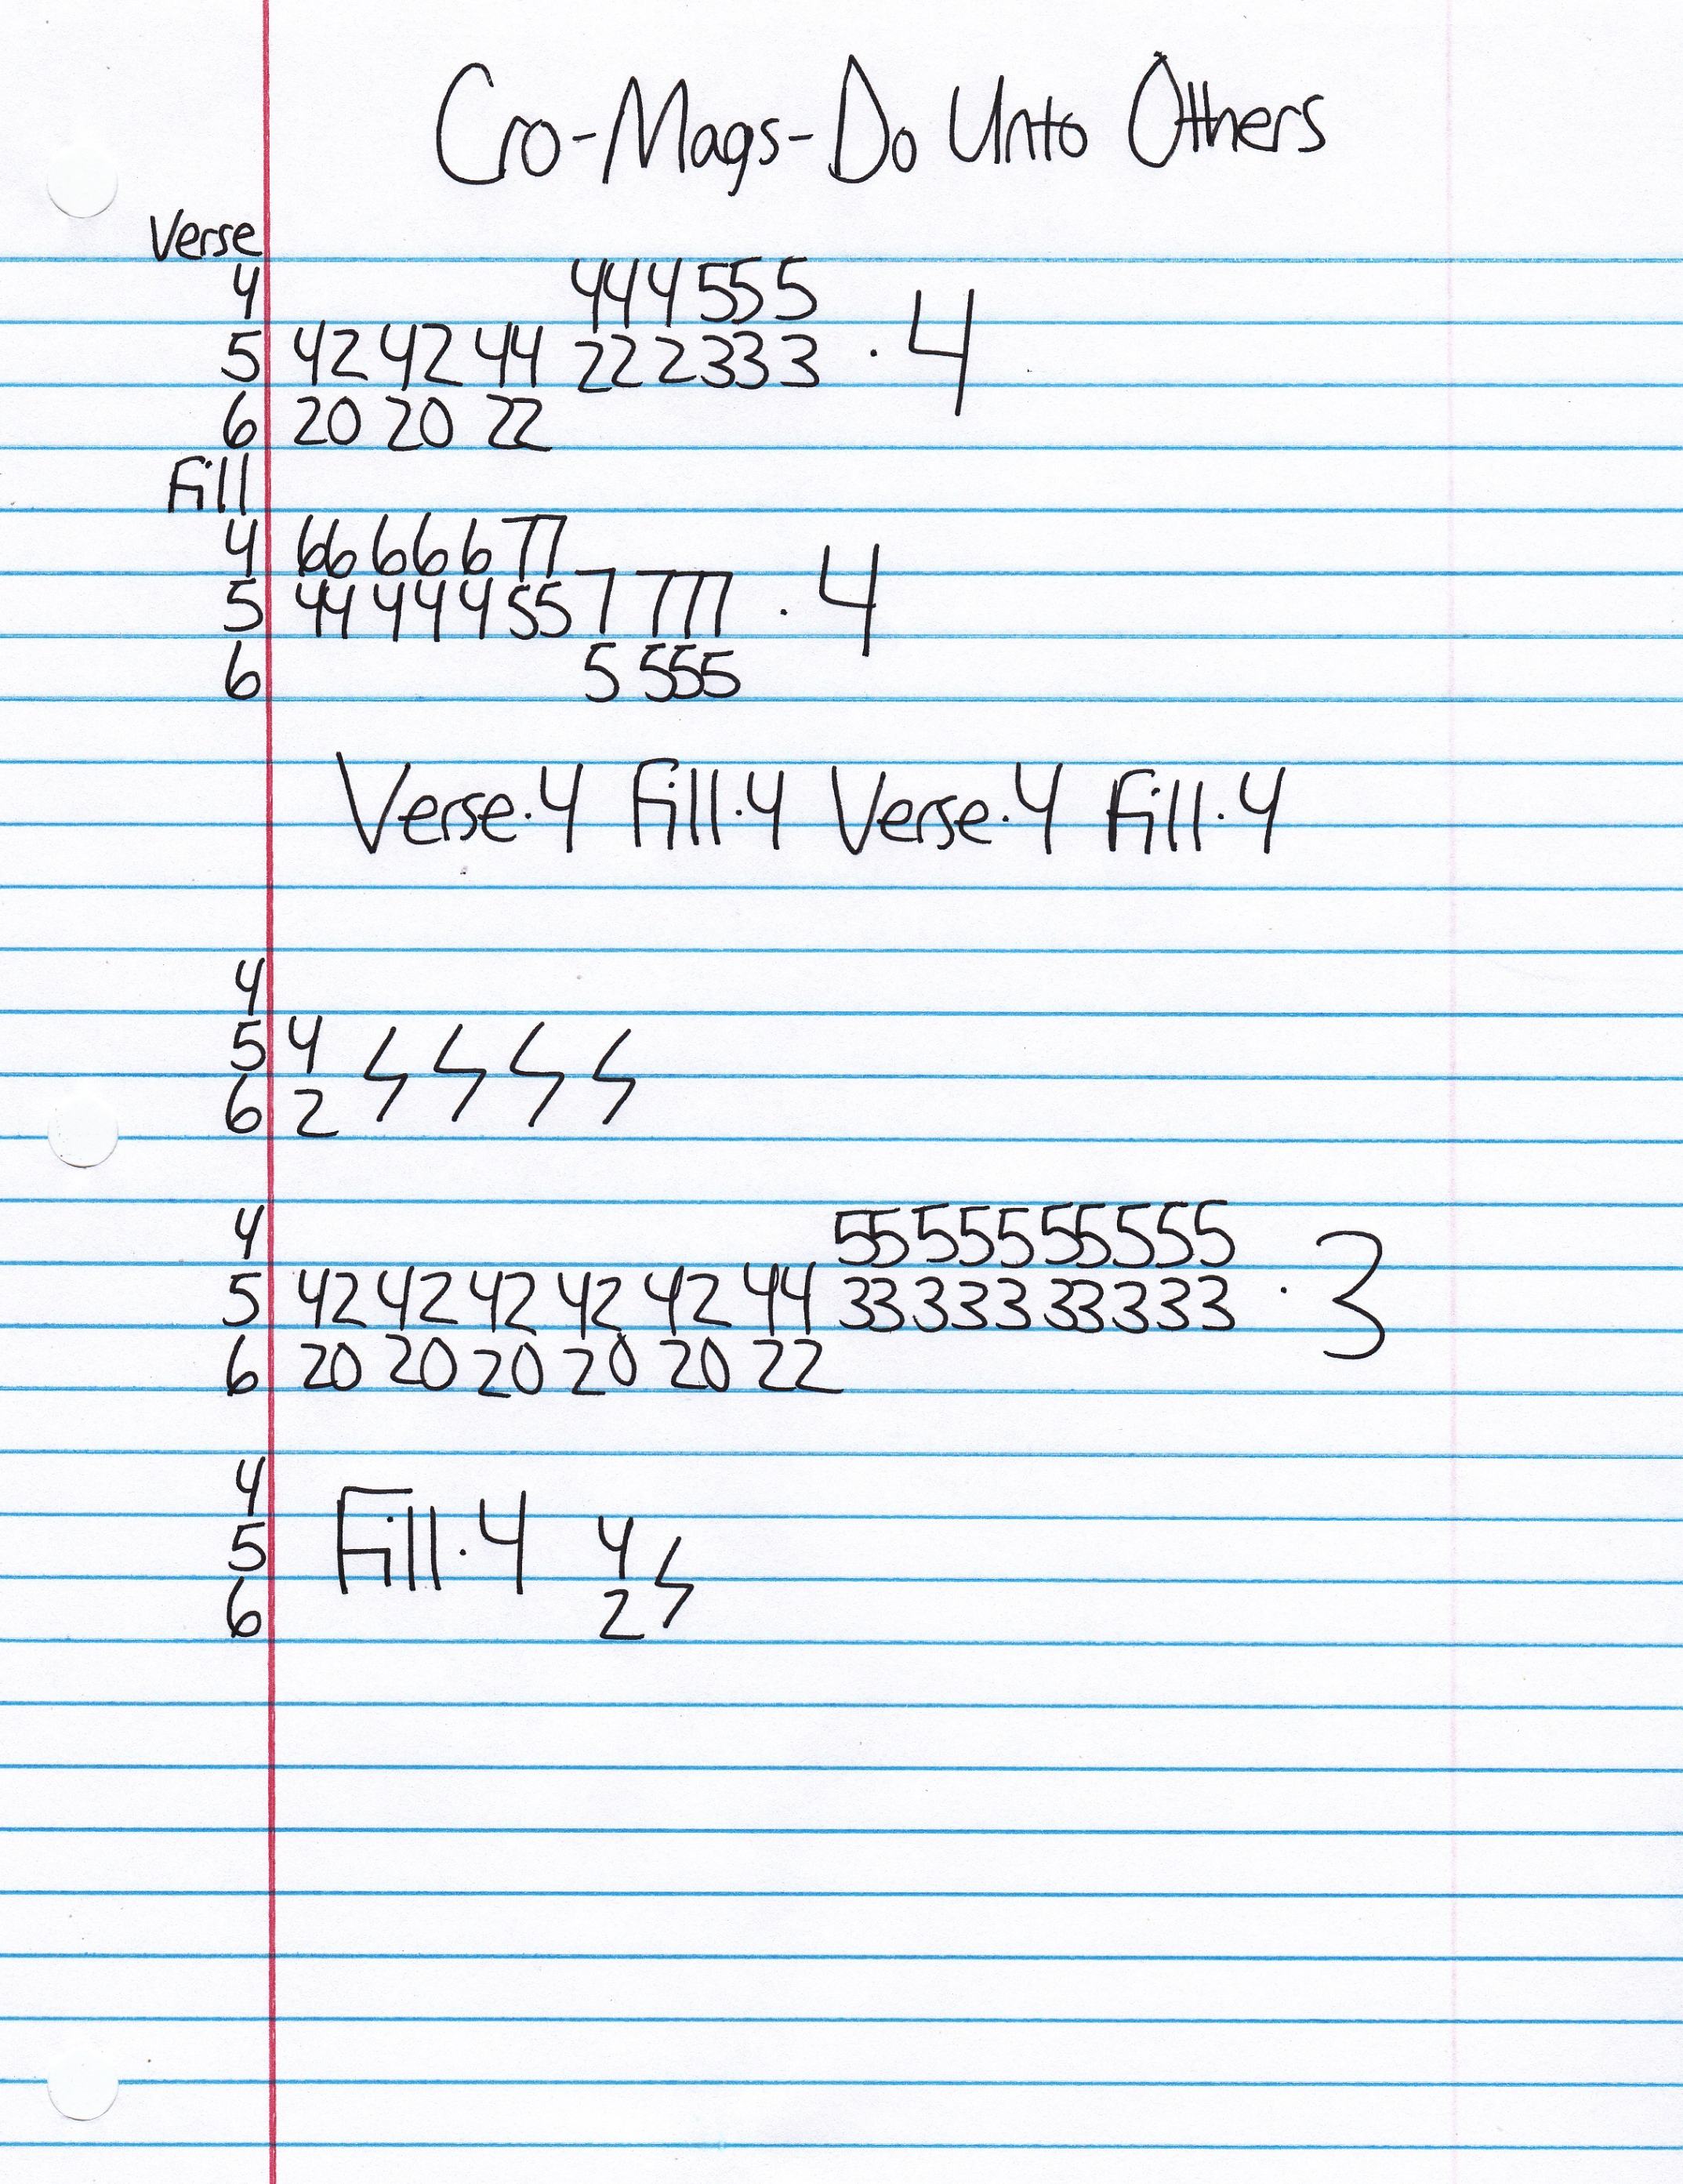 Cro-Mags-Do Unto Others
Verse
4 444 555
5 42 42 44 222 333 · 4
6 20 20 22
Fill
4 66 666 77
5 44 444 55 7 777 · 4
6 5 555
Verse·4 Fill·4 Verse·4 Fill·4
4
5 4
6 2
4 55 555 55 555
5 42 42 42 42 42 44 33 333 33 333 · 3
6 20 20 20 20 20 22
4
5 Fill·4 4
6 2